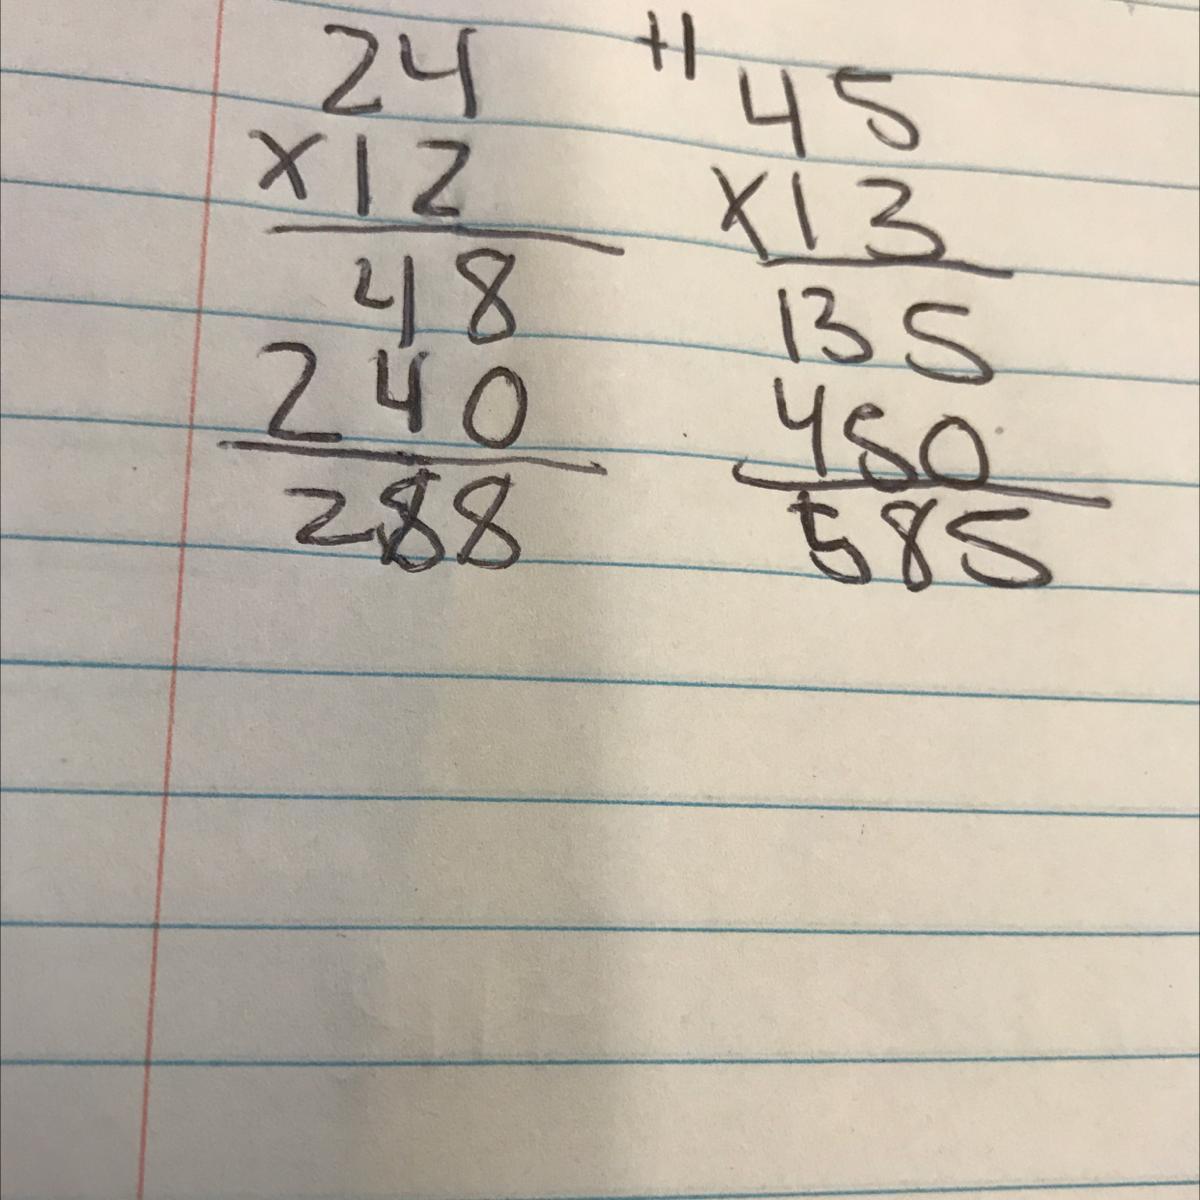 24
x12
48
240
288
+1
45
x13
135
450
585